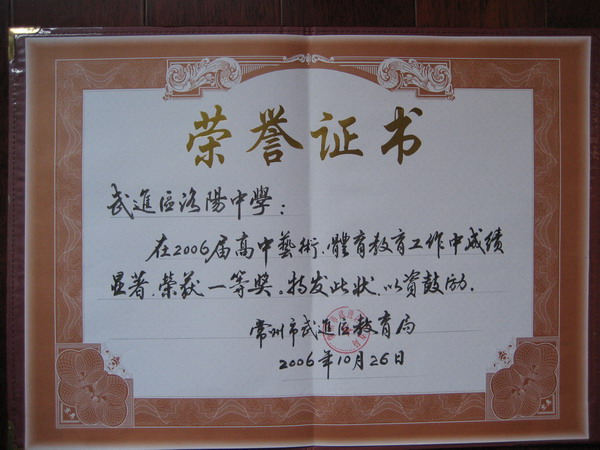 荣誉证书
武進區洛陽中學：
在2006届高中藝術、體育教育工作中成绩
显著、荣获一等奖。特发此状、以资鼓励.
常州市武進區教育局
2006年10月26日